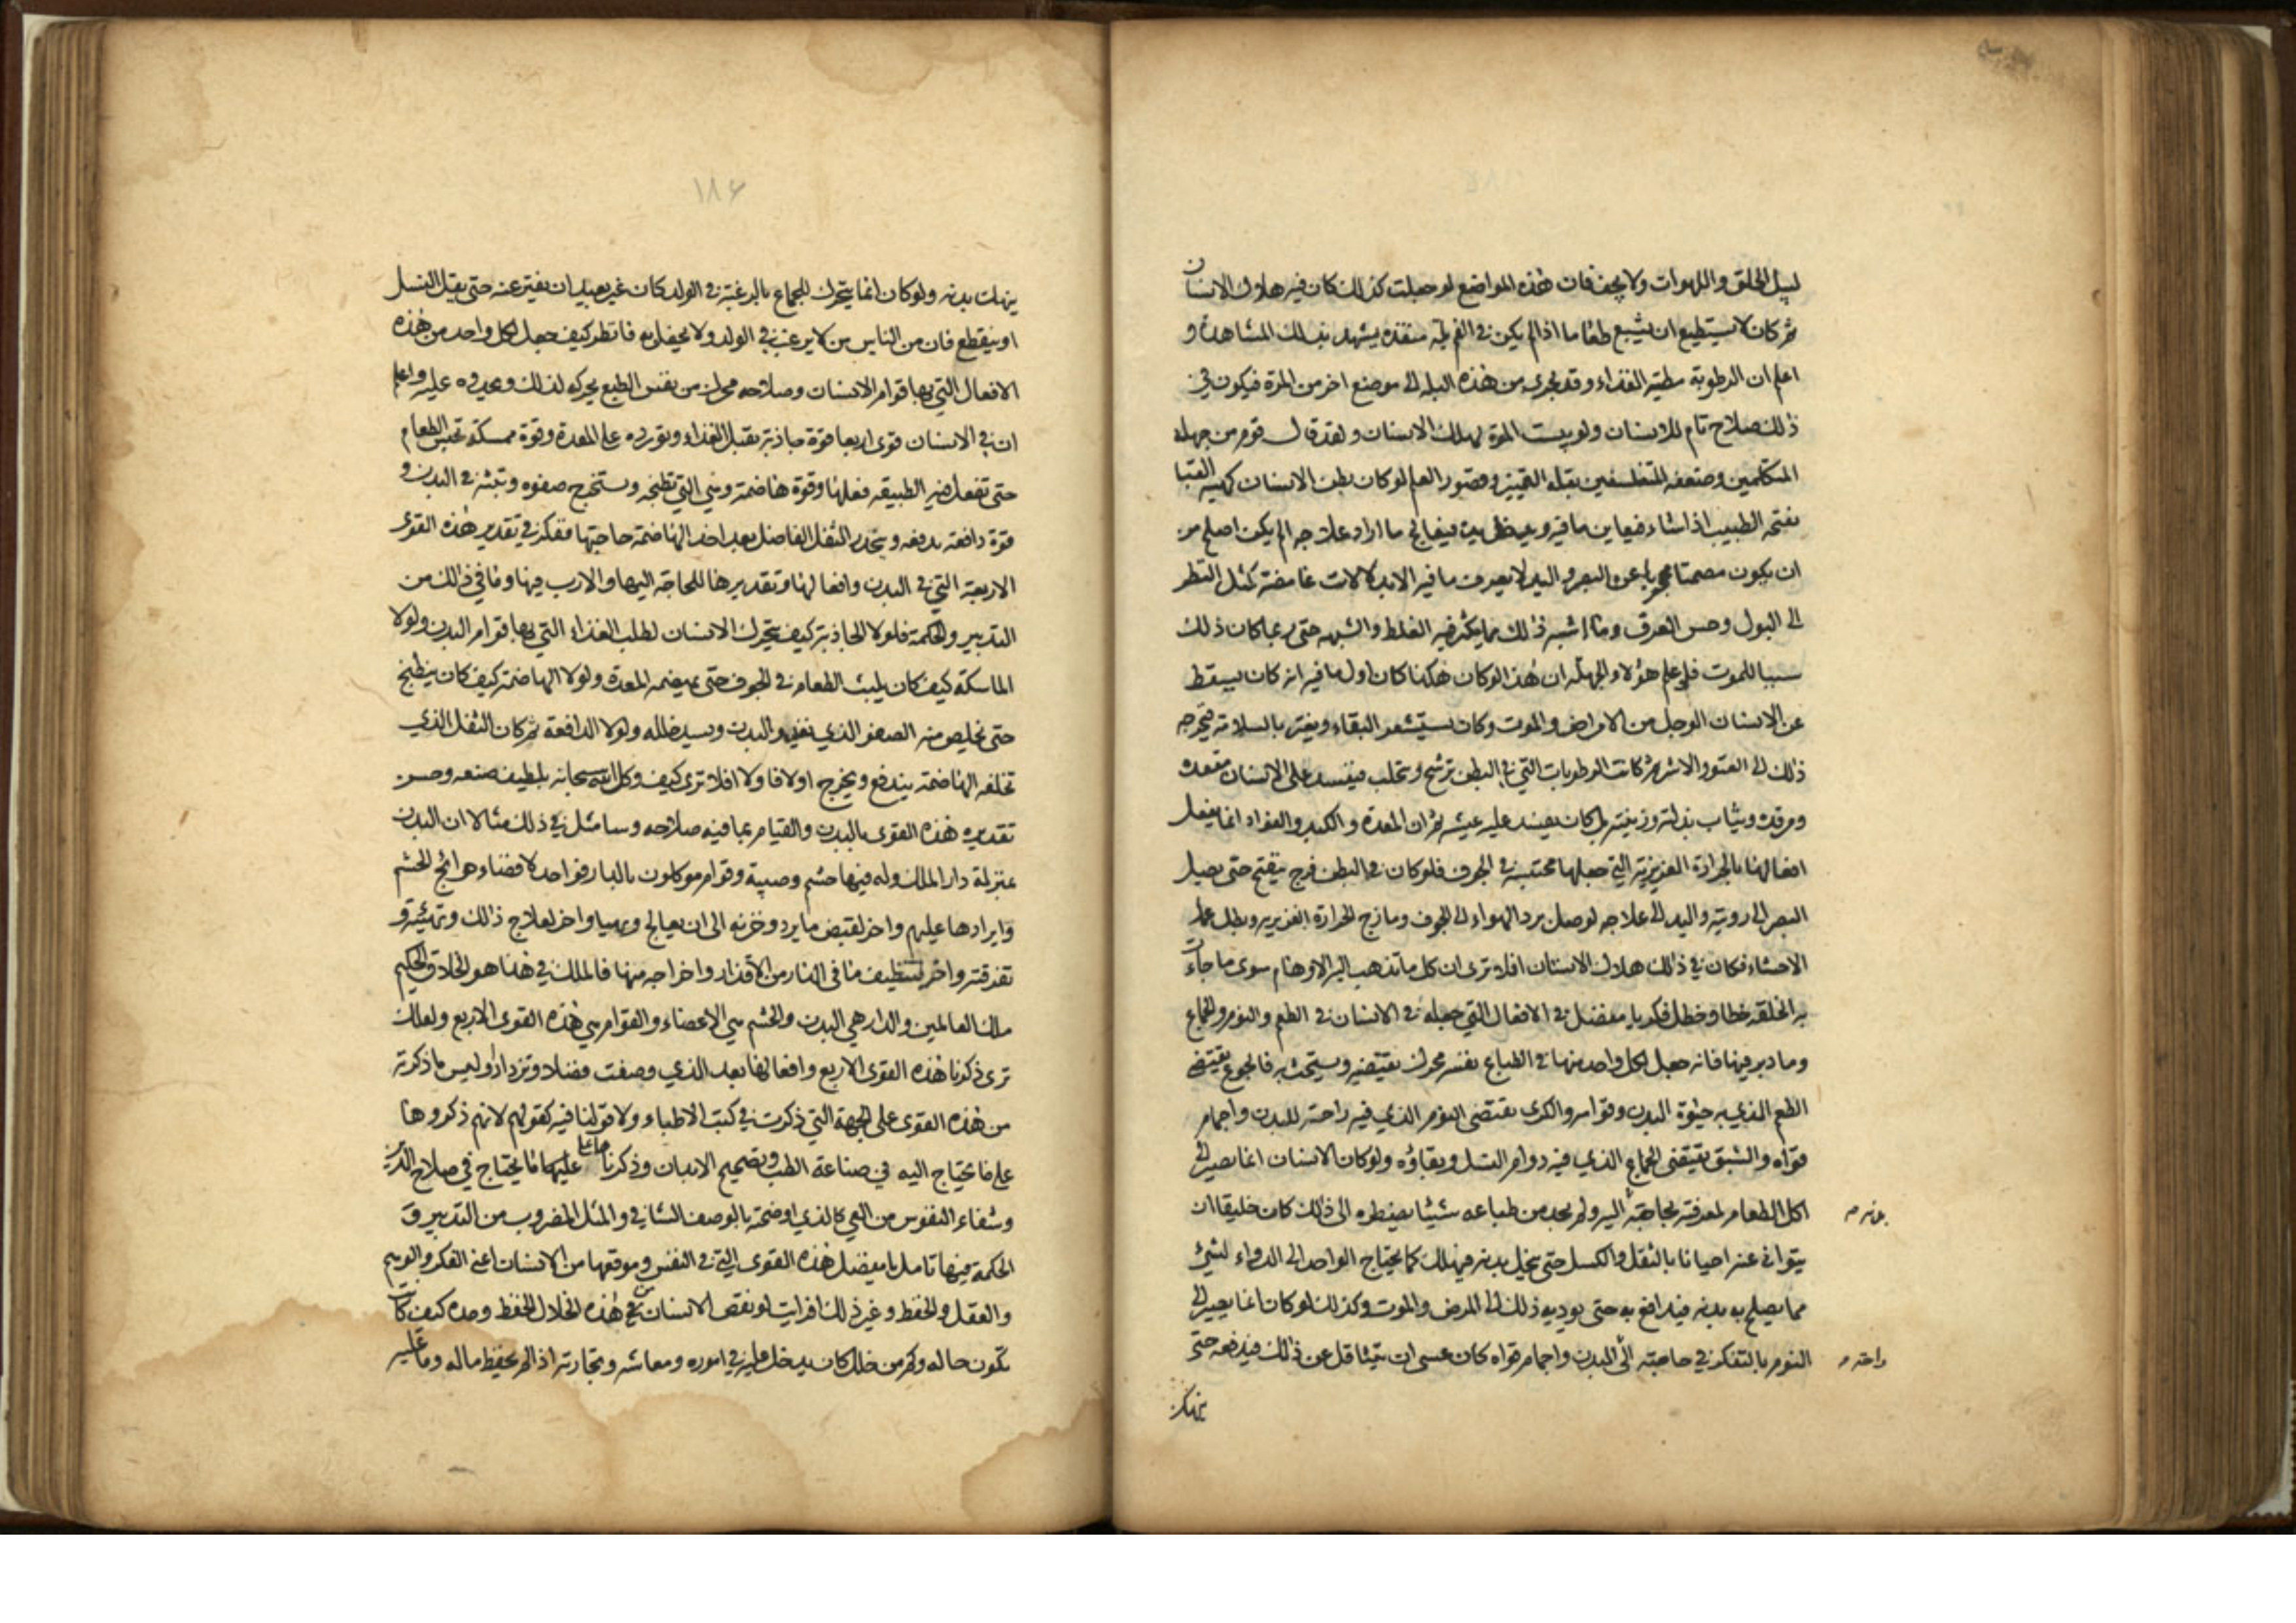 ليبل الحلق و اللهوات ولا يجف فان هذه المواضع لو جعلت كذلك كان فيه هلاك الانسان
ثم كان لا يستطيع ان يشيع طعاما اذا لم يكن في الفم بلة تنفذه يشهد بذلك المشاهدة و
اعلم ان الرطوبة مطية الغذاء وقد يجرى من هذه البله الى موضع اخر من المرة فيكون في
ذلك صلاح تام للانسان ولو يبست المرة لهلك الانسان ولقد قال قوم من جهلة
المتكلمين وضعفه المتفلسفين بقلة التمييز وقصور العلم لو كان بطن الانسان كهيئة القبا
يفتحه الطبيب اذا شاء فيعاين ما فيه ويدخل يده فيعالج ما اراد علاجه الم يكن اصلح من
ان يكون مصمتا محجوبا عن البصر و اليد لا يعرف ما فيه الا بدلالات غامضة كمثل النظر
الى البول وحس العرق وما اشبه ذلك مما يكثر فيه الغلط والشبهه حتى ربما كان ذلك
سببا للموت فلو علم هؤلاء الجهلة ان هذا لو كان هكذا كان اول ما فيه انه كان يسقط
عن الانسان الوجل من الامراض و الموت وكان يستشعر البقاء ويغتر بالسلامة فيخرجه
ذلك الى العتو والاشر ثم كانت الرطوبات التي في البطن ترشح وتحلب فيفسد على الانسان مقعده
ومرقده وثياب بذلته وزينته بل كان يفسد عليه عيشه ثم ان المعدة و الكبد والفؤاد انما يفعل
افعالها بالحرارة الغريزية التي جعلها محتبسة في الجوف فلو كان في البطن فرج ينفتح حتى يصل
البصر الى رويته واليد الى علاجه لوصل برد الهواء الى الجوف ومازج الحرارة الغريزيه وبطل عمل
الاحشاء فكان في ذلك هلاك الانسان افلا ترى ان كل ما تذهب اليه الاوهام سوى ما جاءت
به الخلقة خطا وخطل فكر يا مفضل في الافعال التي جعلت في الانسان في الطعم والنوم والجماع
وما دبر فيها فانه جعل لكل واحد منها في الطباع نفسه محرك يقتضيه ويستحث به فالجوع يقتضى
الطعم الذي به حيٰوة البدن وقوامه والكرى يقتضى النوم الذي فيه راحة للبدن واجمام
قواه والشبق يقتضى الجماع الذي فيه دوام النسل وبقاؤه ولو كان الانسان انما يصير الى
اكل الطعام لمعرفته بحاجة اليه ولم يجد من طباعه شيئا يضطره الى ذلك كان خليقا ان
بدنه م
يتوانى عنه احيانا بالثقل والكسل حتى ينحل بدنه فيهلك كما يحتاج الواحد الى الدواء لشئ
مما يصلح به بدنه فيدافع به حتى يوديه ذلك الى المرض والموت وكذلك لو كان انما يصير الى
النوم بالتفكر في حاجته الى البدن واجمام قواه كان عسى ان يتثاقل عن ذلك فيدفعه حتى
راحة م
ينهك
١٨۶
ينهك بدنه ولو كان انما يتحرك للجماع بالرغبة في الولد كان غير بعيد ان يفتر عنه حتى يقل النسل
او ينقطع فان من الناس من لا يرغب في الولد ولا يحفل به فانظر كيف جعل لكل واحد من هذه
الافعال التي بها قوام الانسان وصلاحه محرك من نفس الطبع يحركه لذلك ويحدوه عليه واعلم
ان في الانسان قوى اربعا قوة جاذبة تقبل الغذاء وتورده على المعدة وقوة ممسكة تحبس الطعام
حتى تفعل فيه الطبيعه فعلها وقوة هاضمة وهي التي تطبخه وتستخرج صفوه وتبثه في البدن و
قوة دافعه تدفعه وتحدر الثفل الفاضل بعد اخذ الهاضمة حاجتها ففكر في تقدير هذه القوى
الاربعة التي في البدن وافعالها وتقديرها للحاجة اليها والارب فيها وما في ذلك من
التدبير والحكمة فلولا الجاذبة كيف يتحرك الانسان لطلب الغذاء التي بها قوام البدن ولولا
الماسكة كيف كان يلبث الطعام في الجوف حتى يهضمه المعدة ولولا الهاضمة كيف كان ينطبخ
حتى تخلص منه الصفو الذي يغذو البدن ويسد خلله ولولا الدافعة ثم كان الثفل الذي
تخلفه الهاضمة يندفع ويخرج اولا فاولا افلا ترى كيف وكل الله سبحانه بلطيف صنعه وحسن
تقديره هذه القوى بالبدن والقيام بما فيه صلاحه وسامثل في ذلك مثالا ان البدن
بمنزلة دار الملك وله فيها حشم وصبية وقوام موكلون بالدار فواحد لاقضاء حوائج الحشم
وايرادها عليهم واخر لقبض ما يرد وخزنه الى ان يعالج ويهيا واخر لعلاج ذلك وتهيئته و
تفرقته واخر لتنظيف ما في الدار من الاقذار واخراجه منها فالملك في هذا هو الخلاق الحكيم
ملك العالمين والدار هي البدن والحشم هي الاعضاء والقوام هي هذه القوى الاربع ولعلك
ترى ذكرنا هذه القوى الاربع وافعالها بعد الذي وصفت فضلا وتزدادا وليس ما ذكرته
من هذه القوى على الجهة التي ذكرت في كتب الاطباء ولا قولنا فيه كقولهم لانهم ذكروها
على ما يحتاج اليه في صناعة الطب وتصحيح الابدان وذكرناها على ما يحتاج في صلاح الدين
وشفاء النفوس من الغي كالذي اوضحته بالوصف الشافي والمثل المضروب من التدبير و
الحكمة فيها تامل يا مفضل هذه القوى التي في النفس وموقعها من الانسان اعني الفكر والوهم
والعقل والحفظ وغير ذلك افرايت لو نقص الانسان من هذه الخلال الحفظ وحده كيف كانت
تكون حاله وكم من خلل كان يدخل عليه في اموره ومعاشه وتجارته اذا لم يحفظ ماله وما عليه